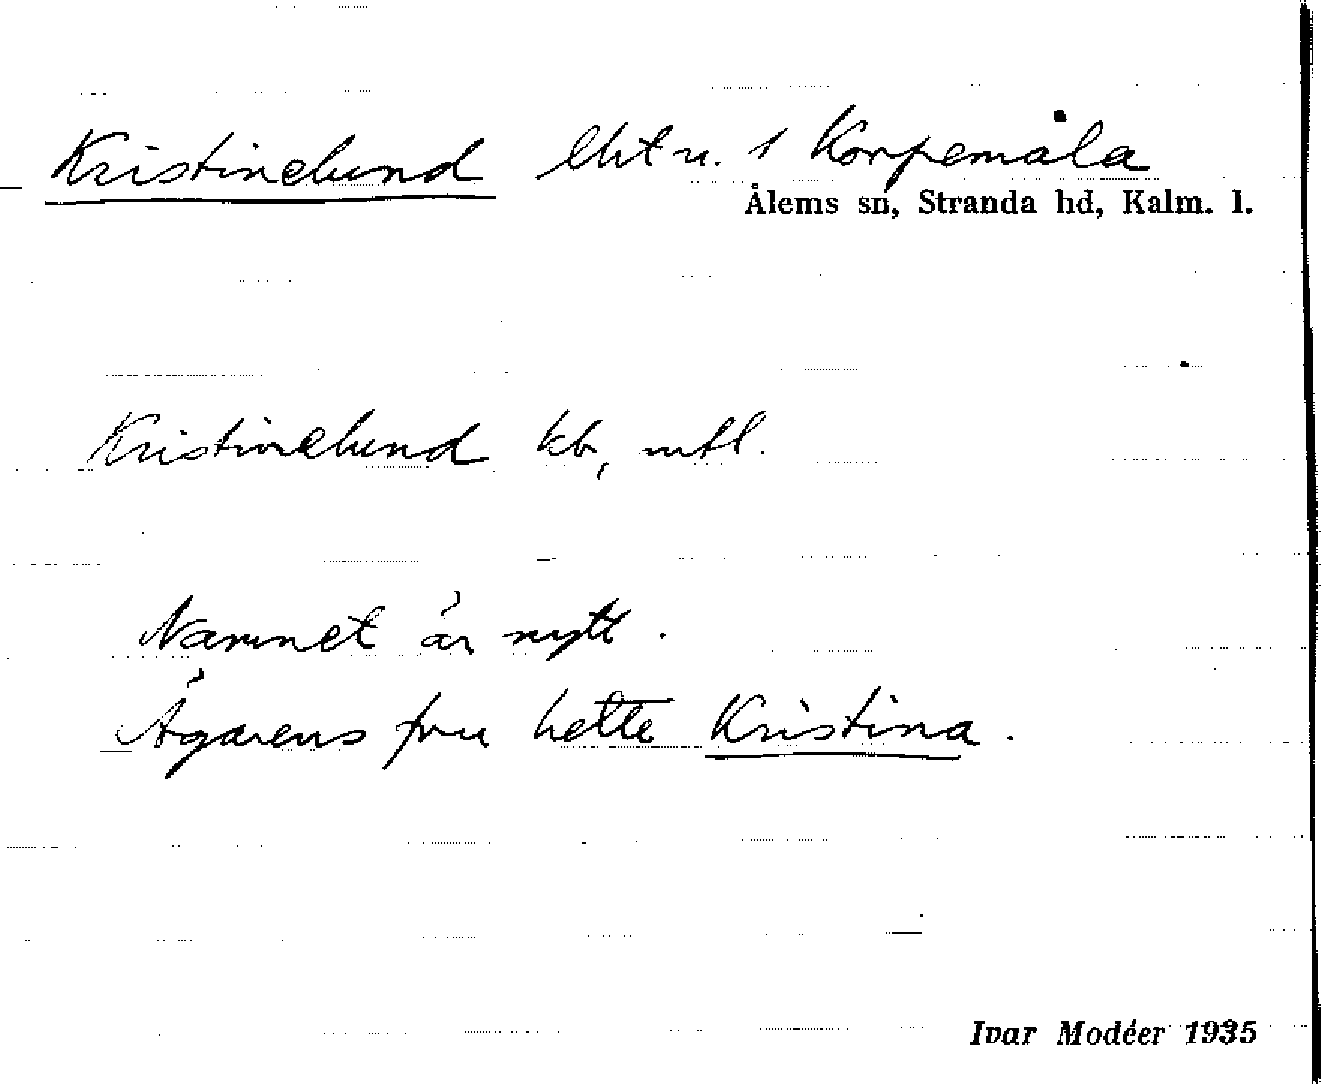 Kristinelund lht u. 1 Korpemåla
Ålems sn, Stranda hd, Kalm. l.
Kristinelund kb, mtl.
Namnet är nytt.
Ägarens fru hette Kristina.
Ivar Modéer 1935